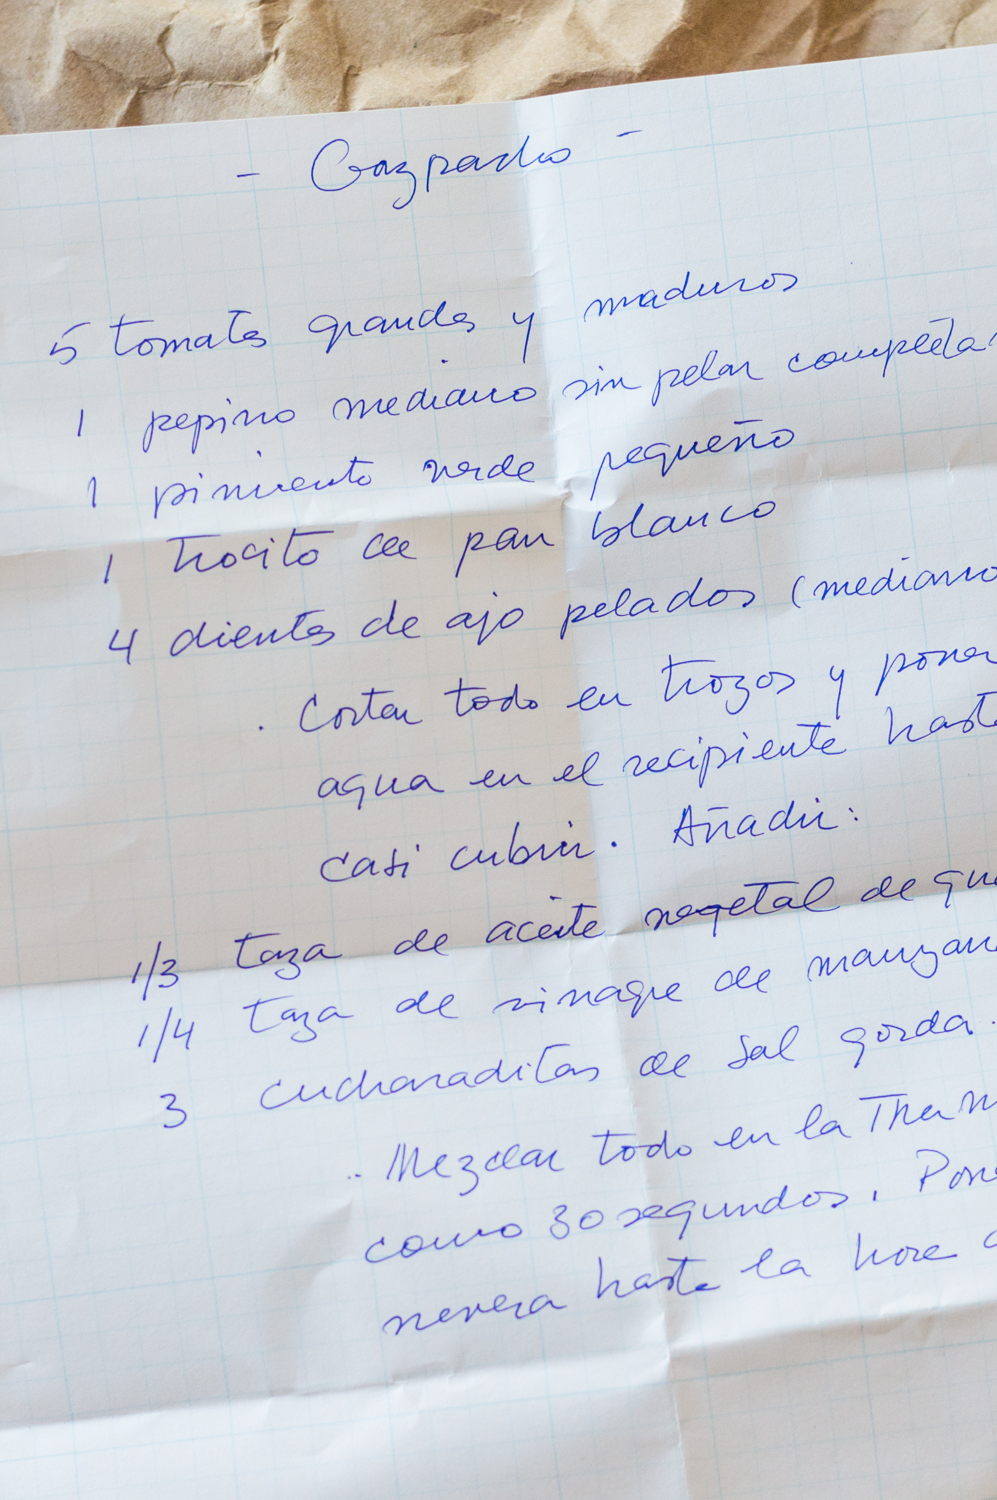 - Gazpacho -
5 tomates grandes y maduros
1 pepino mediano sin pelar completa
1 pimiento verde pequeño
1 trocito de pan blanco
4 dientes de ajo pelados (mediano
. Cortar todo en trozos y poner
agua en el recipiente hasta
casi cubrir. Añadir:
1/3 taza de aceite vegetal de
1/4 taza de vinagre de manzan
3 cucharaditas de sal gorda.
. Mezclar todo en la Therm
como 30 segundos. Pone
nevera hasta la hora